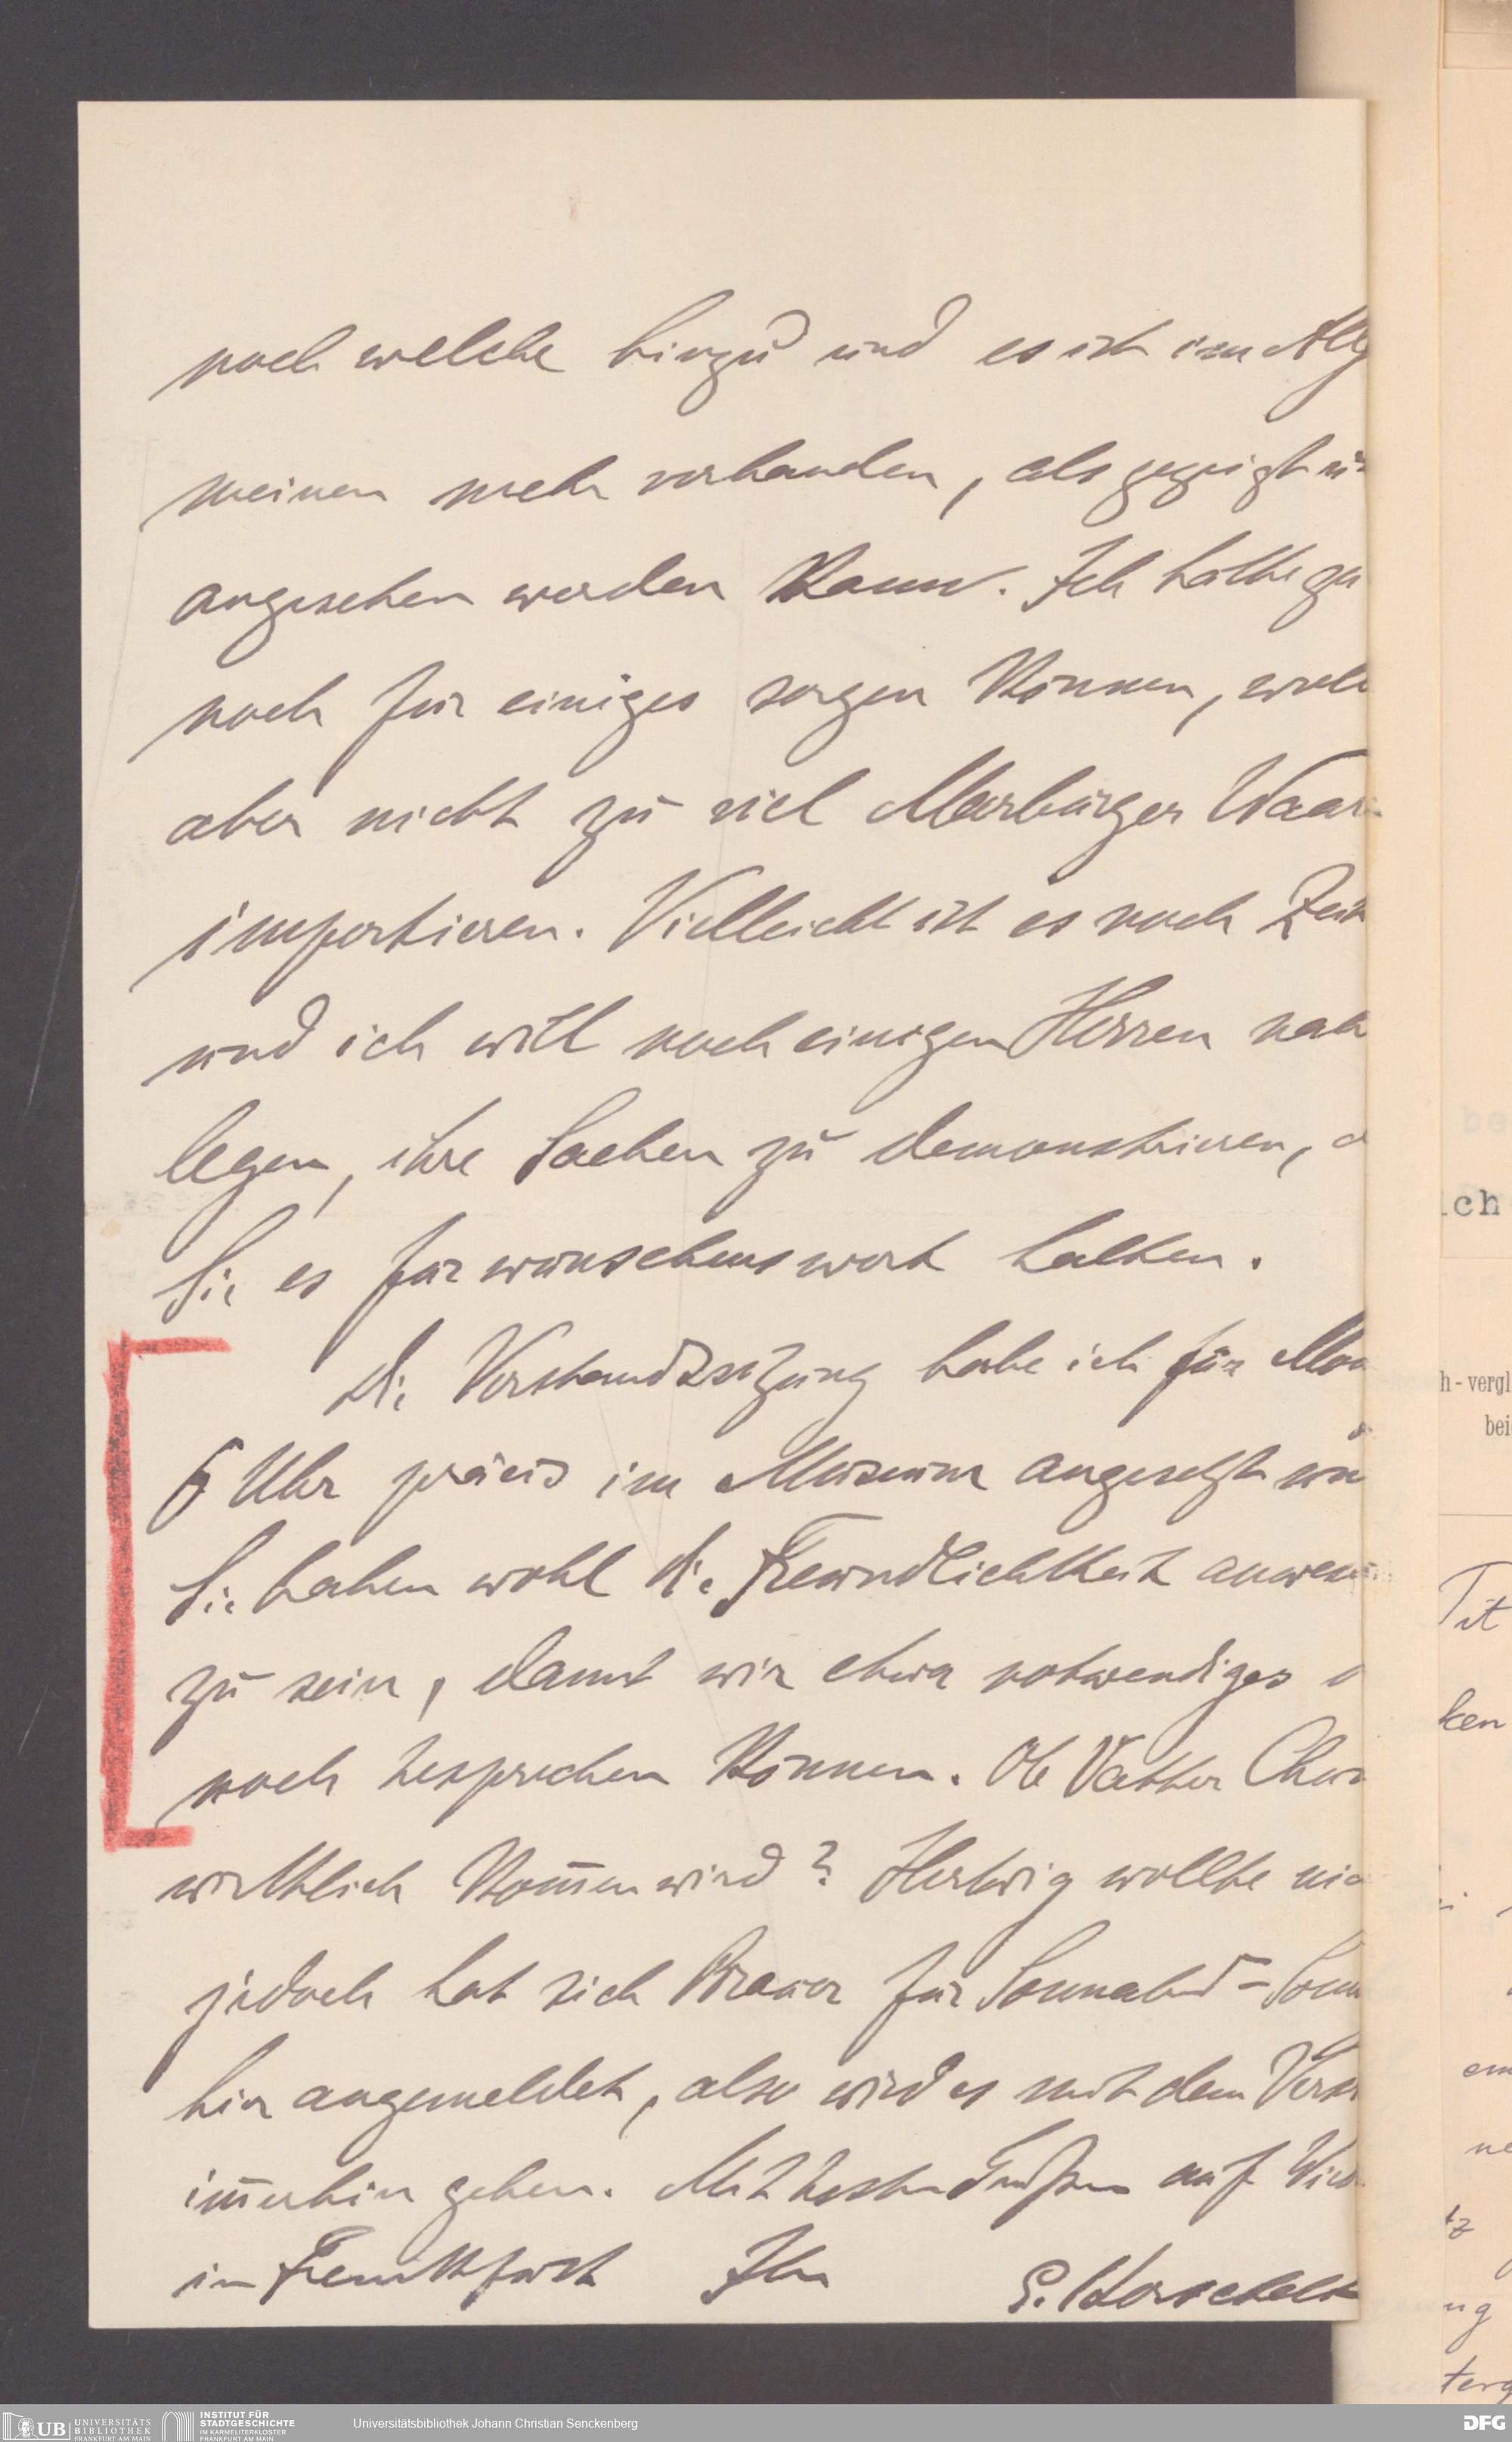 noch welche hinzu und es ist im Allg
meinen mehr vorhanden, als gezeigt u
angesehen werden kann. Ich hätte ga
noch für einiges sorgen können, woll
aber nicht zu viel Marburger Waar
importieren. Vielleicht ist es noch Zeit
und ich will noch einigen Herren nah
legen, ihre Sachen zu demonstrieren,
Sie es für wünschenswert halten.
Die Vorstandssitzung habe ich für Mon
6 Uhr präcis im Museum angesetzt un
Sie haben wohl die Freundlichkeit anwes
zu sein, damit wir etwa notwendiges
noch besprechen können. Ob Vatter Chun
wirklich kom̅en wird? Hertwig wollte nic
jedoch hat sich Brauer für Sonnabend-Sonn
hier angemeldet, also wird es mit dem Vers
im̅erhin gehen. Mit besten Grüßen auf Wied
in Frankfurt Ihr E. Korschelt
ich
h-vergl
bei
Tit
ken
em
ne
tz
ng
terg
UB UNIVERSITÄTS
BIBLIOTHEK
FRANKFURT AM MAIN
INSTITUT FÜR
STADTGESCHICHTE
IM KARMELITERKLOSTER
FRANKFURT AM MAIN
Universitätsbibliothek Johann Christian Senckenberg
DFG